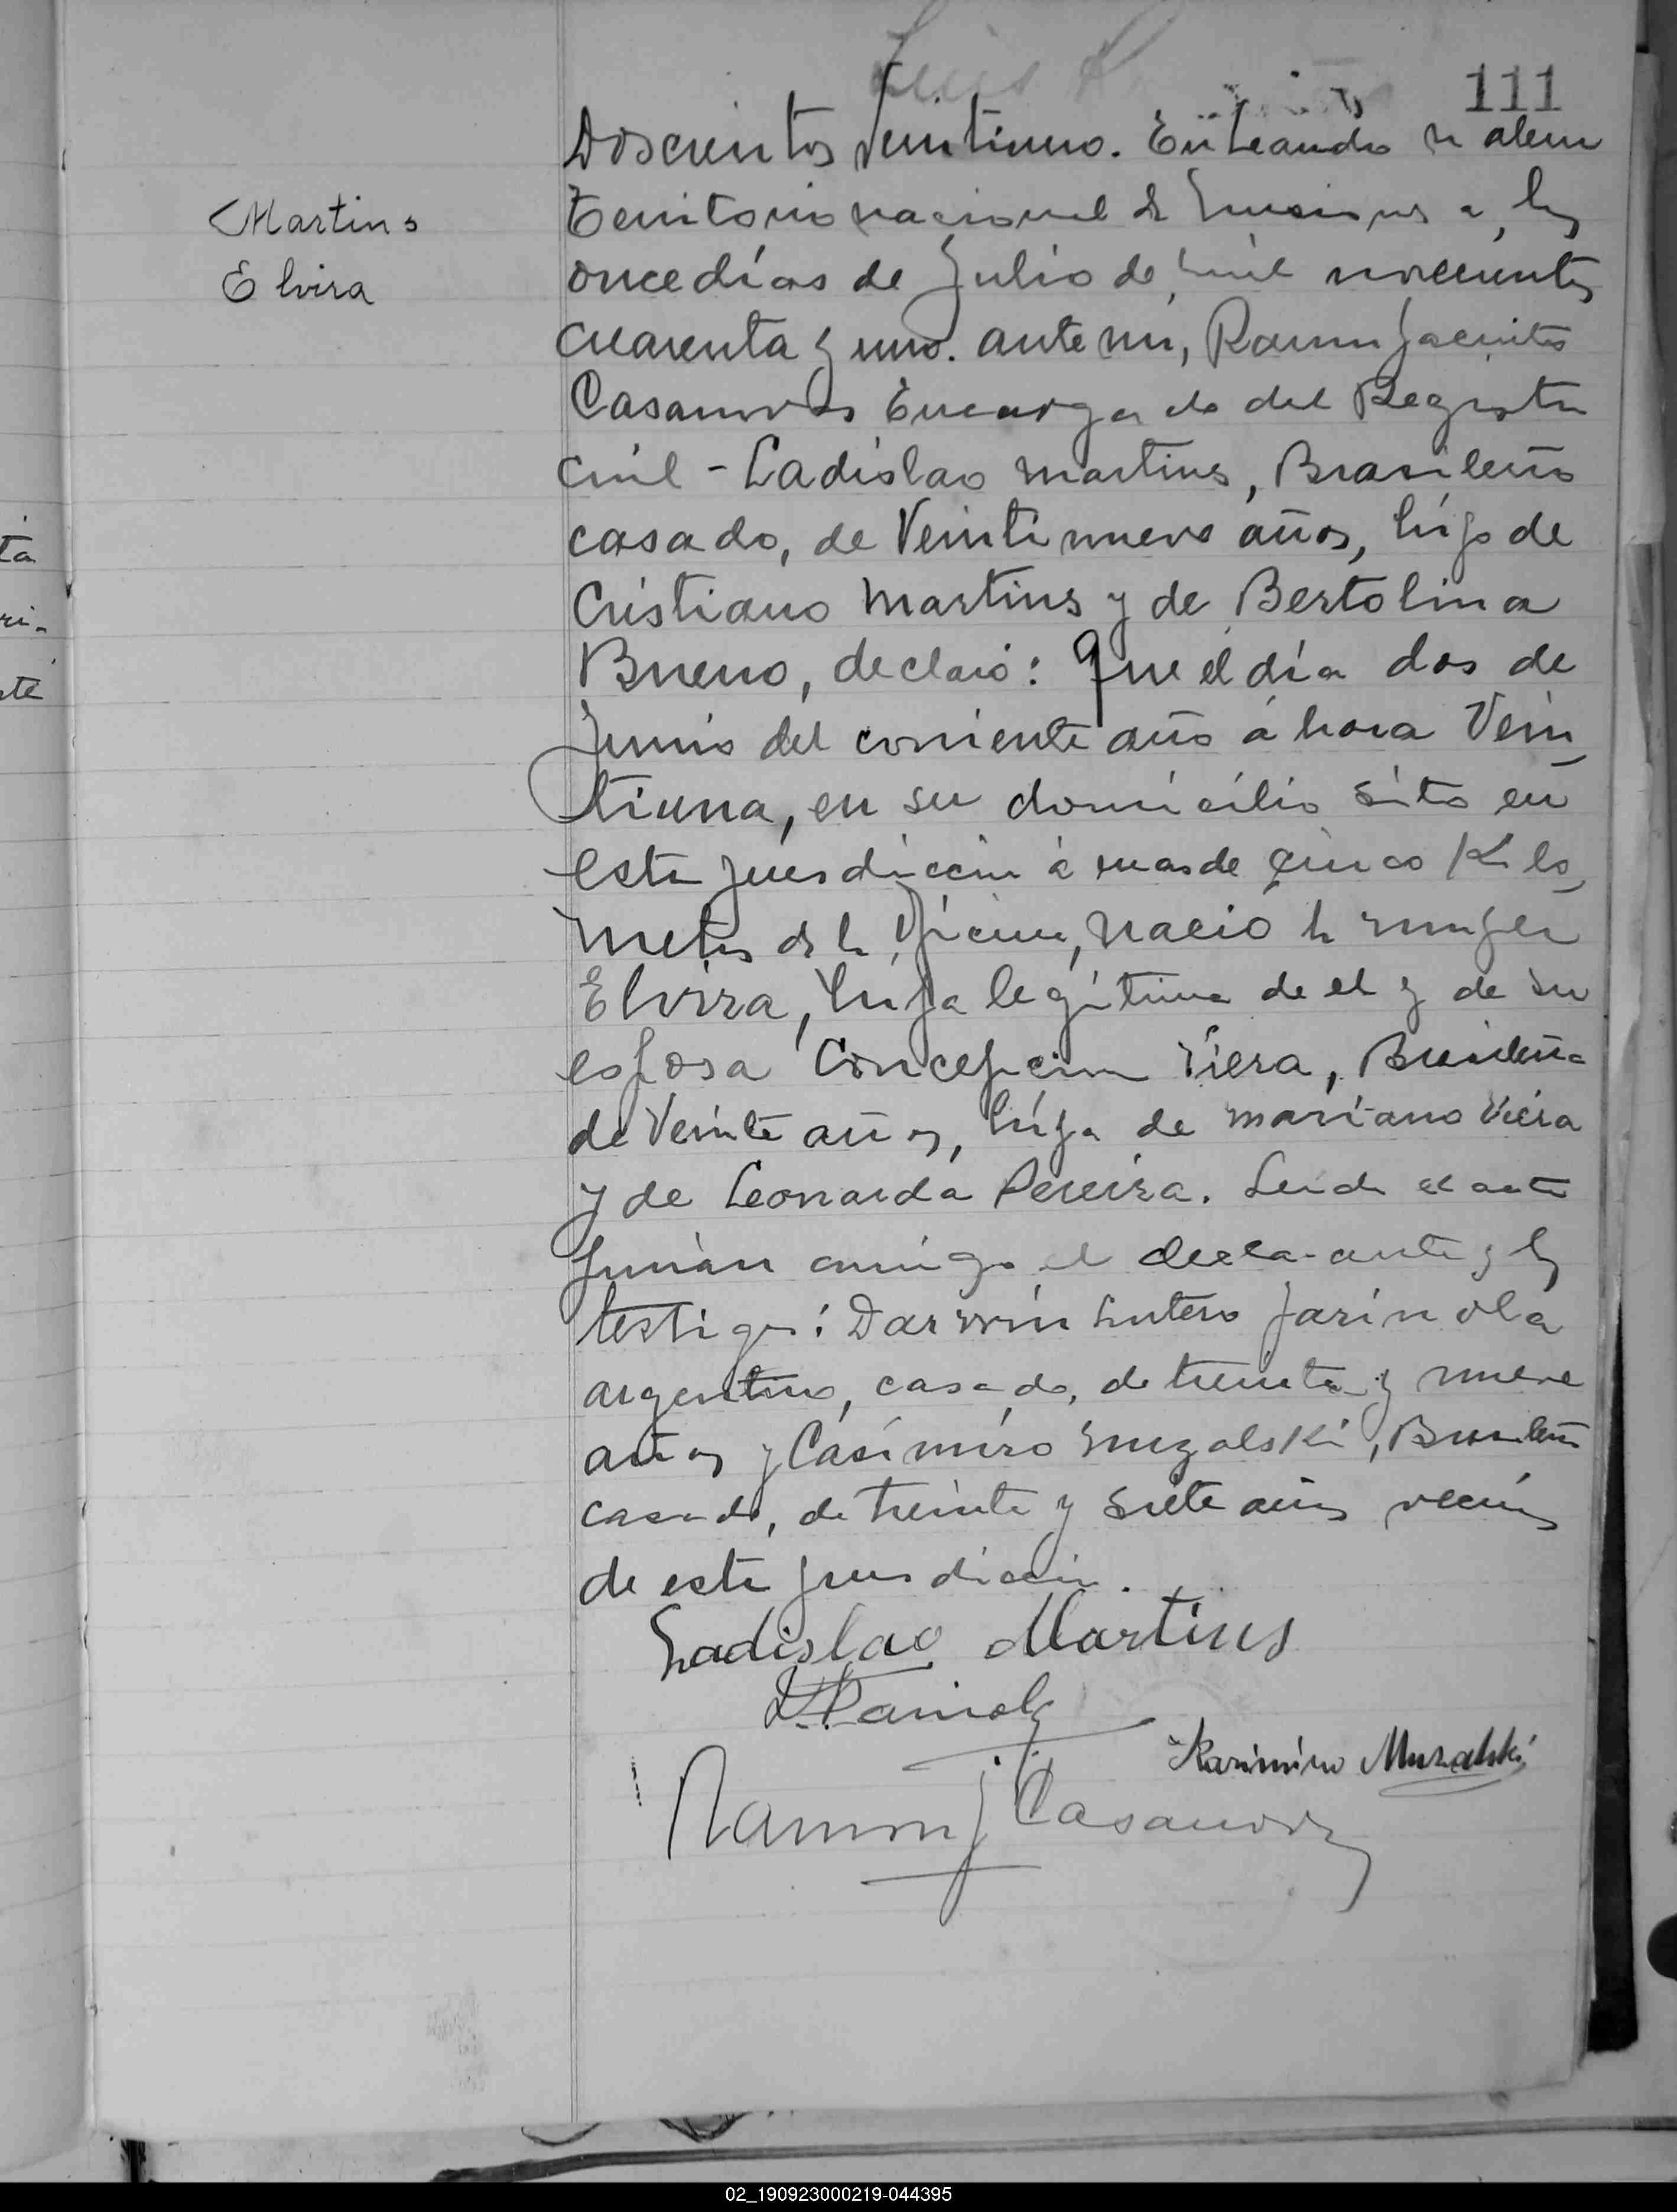 111
Martins
Elvira
Doscientos Veintiuno. En Leandro N alem
Territorio nacional de Misiones a los
once días de Julio de mil novecientos
cuarenta y uno. ante mi, Ramon Jacinto
Casanovas Encargado del Registro
civil - Ladislao Martins, Brasileño
casado, de Veintinueve años, hijo de
Cristiano Martins y de Bertolina
Bueno, declaró: Que el día dos de
Junio del corriente año á hora Vein
tiuna, en su domicilio sito en
esta jurisdiccion á mas de cinco Kilo
metros de la Oficina, nació la mujer
Elvira, hija legítima de el y de su
esposa Concepcion Viera, Brasileña
de Veinte años, hija de Mariano Viera
y de Leonarda Pereira. Leida el acta
firman conmigo el declarante y los
testigos: Darwin
argentino, casado, de treinta y nueve
años y Casimiro Muzalski, Brasileño
casado, de treinta y siete años vecinos
de esta jurisdiccion.
Ladislao Martins
Kasimiro Muzalski
Ramon J Casanovas
02_190923000219-044395